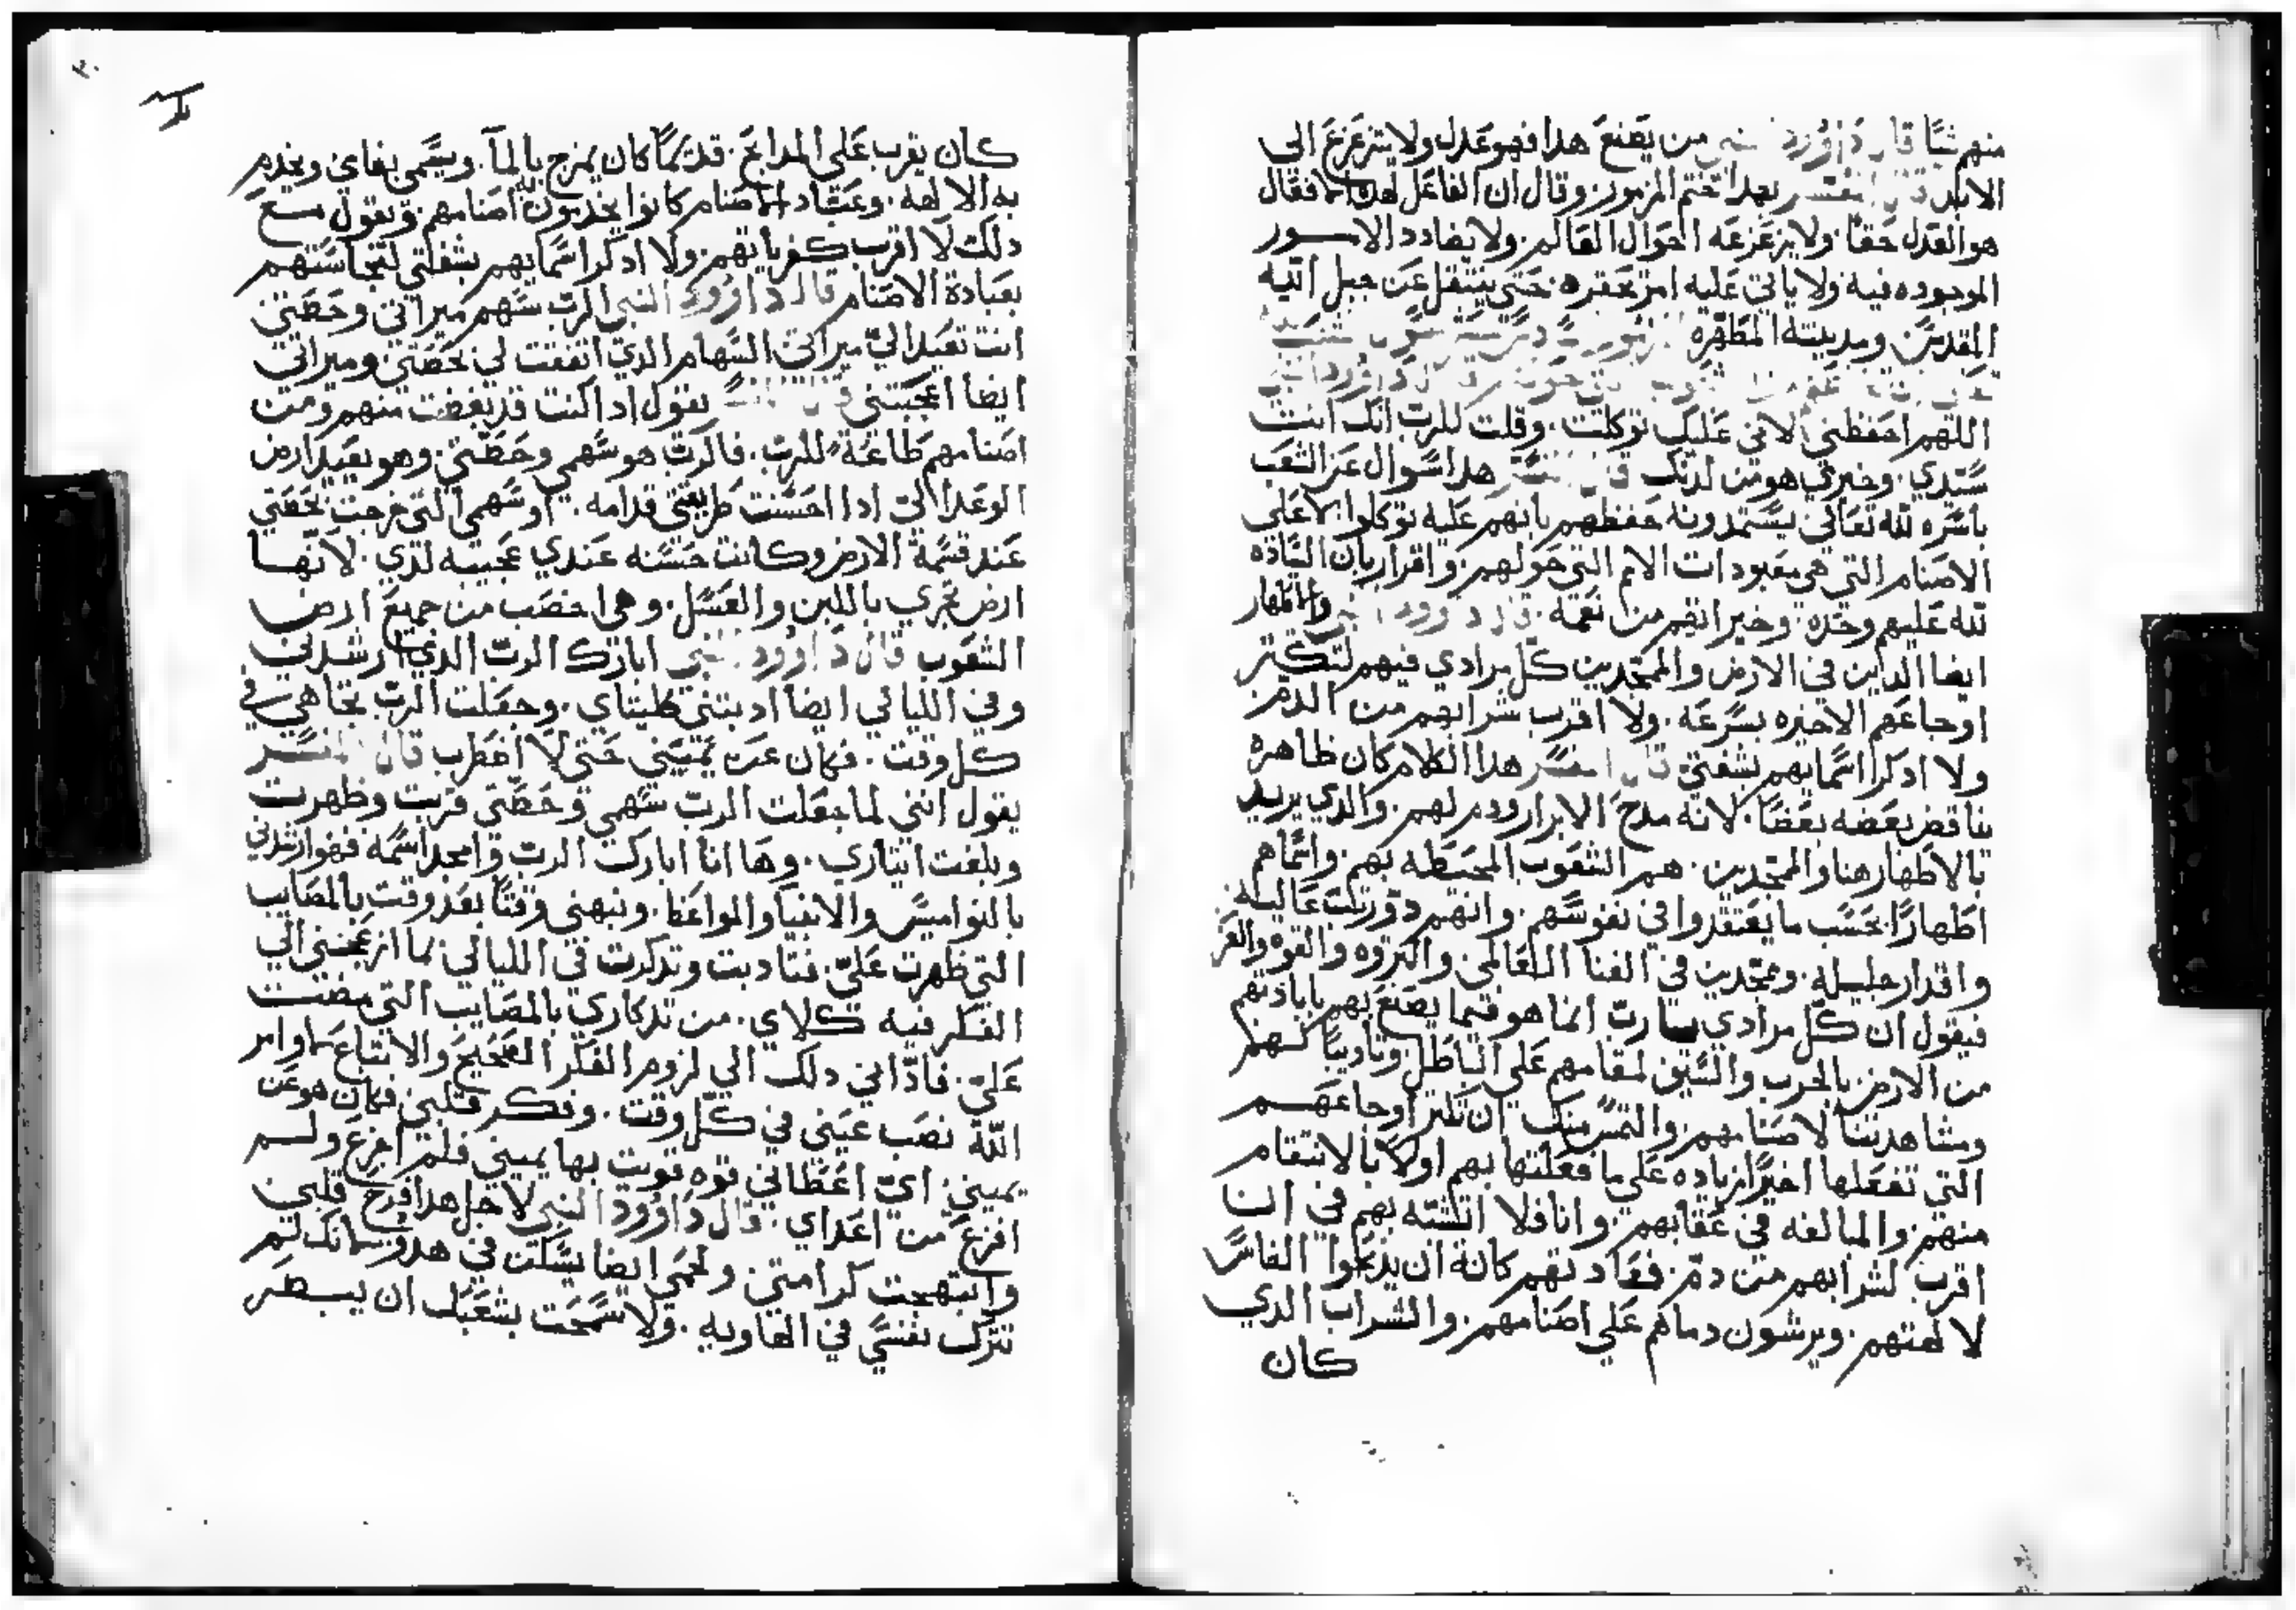 منهم شيًا قال داوُود النبي من يصنع هدا فهو عدل ولا يتزعزع الى
الابد قال المفسر بهدا ختم المزمور وقال ان الفاعل لهدا فقال
هو العدل حقًا ولا يزعزعه احوال العالم ولا يضادد الامور
الموجوده فيه ولا ياتي عليه امر تحقره حتي ينتقل عن جبل الله
المقدس ومدينته المطهره
اللهم احفظني لانني عليك توكلت وقلت للرب انك انت
سيدي وخيري هو من لدنك قال المفسر هدا سوال عن الشعب
باسره لله تعالى يستمدونه حفظهم بانهم عليه توكلوا لا علي
الاصنام التي هي معبودات الامم التي حولهم واقرار بان السادة
لله عليهم وحده وخيراتهم من نعمه قال داوود النبي والاظهار
ايضا الدين في الارض والممجدين كل مرادي فيهم لتكثر
اوجاعهم الاخيره بسرعه ولا اقرب شرابهم من الدم
ولا ادكر اسمايهم بشفتي قال المفسر هدا الكلام كان ظاهره
يناقض بعضه بعضًا لانه مدح الابرار ودم لهم والدي يريد
بالاطهار هنا والممجدين هم الشعوب المحيطه بهم واسماهم
اطهارًا بحسب ما يعتقدوا في نفوسهم وانهم دو رتبت عاليه
واقدار جليله وممجدين في الغنا العالمي والتروه والقوه والعز
فيقول ان كل مرادي يا رب انما هو فيما يصنع بهم بابادتهم
من الارض بالحرب والسيف لمقامهم علي الباطل وتاديبًا لهم
ومشاهدتنا لاصنامهم والتمس منك ان تكتر اوجاعهم
التي تفعلها اخيرًا زياده علي ما فعلتها بهم اولاً بالانتقام
منهم والمبالغه في عقابهم وانا فلا اتشبه بهم في ان
اقرب لشرابهم من دم فعادتهم كانة ان يدبحوا الناس
لالهتهم ويرشون دماهم علي اصنامهم والشراب الدي
كان
كان يقرب علي المدابح قد كان يمزج بالمآ ويسمي بغاي ويخدم
به الالهه وعباد الاصنام كانوا يخدمون اصنامهم ويقول مع
دلك لا اقرب كقرباتهم ولا ادكر اسمايهم بشفتي لنجاستهم
بعبادة الاصنام قال داوُود النبي الرب سهم ميراتي وحظتي
انت تعيد اليّ ميراتي السهام الدي اتفقت لي بحصتي وميراتي
ايضا اعجبتني قال المفسر يقول اد اكنت قد بعضت منهم ومن
اصنامهم طاعةً للرب فالرب هو سهمي وحظتي وهو يعيد ارض
الوعد اليّ ادا احسنت طريقتي قدامه او سهمي التي خرجت بحصتي
عند قسمة الارض وكانت حسنه عندي عجيبه لدي لانها
ارض تجري باللبن والعسل وهي اخصب من جميع ارض
الشعوب قال داوُود النبي ابارك الرب الدي ارشدني
وفي الليالي ايضا ادبتني كليتاي وجعلت الرب تجاهي في
كل وقت فكان عن يميني حتي لا اضطرب قال المفسر
يقول انني لما جعلت الرب سهمي وحظتي قربت وظهرت
وبلغت ايتاري وها انا ابارك الرب وامجد اسمه فهو ارشدني
بالنواميس والانبيا والمواعظ ونبهني وقتًا بعد وقت بالمصايب
التي ظهرت عليّ فتادبت وتدكرت في الليالي بما ازعجني الي
الفكر فيه كلاي من تدكاري بالمصايب التي مضت
عليّ فادّاني دلك الي لزوم الفكر الصحيح والاتباع لاوامر
الله نصب عيني في كل وقت وفكر قلبي فكان هو عن
يميني اي اعطاني قوه قويت بها يميني فلم افزع ولم
افزع من اعداي قال داوُود النبي لاجل هدا فرح قلبي
وابتهجت كرامتي ولحمي ايضا يسكن في هدو لانك لم
تترك نفسي في الهاويه ولا سمحت بشعبك ان يبصر